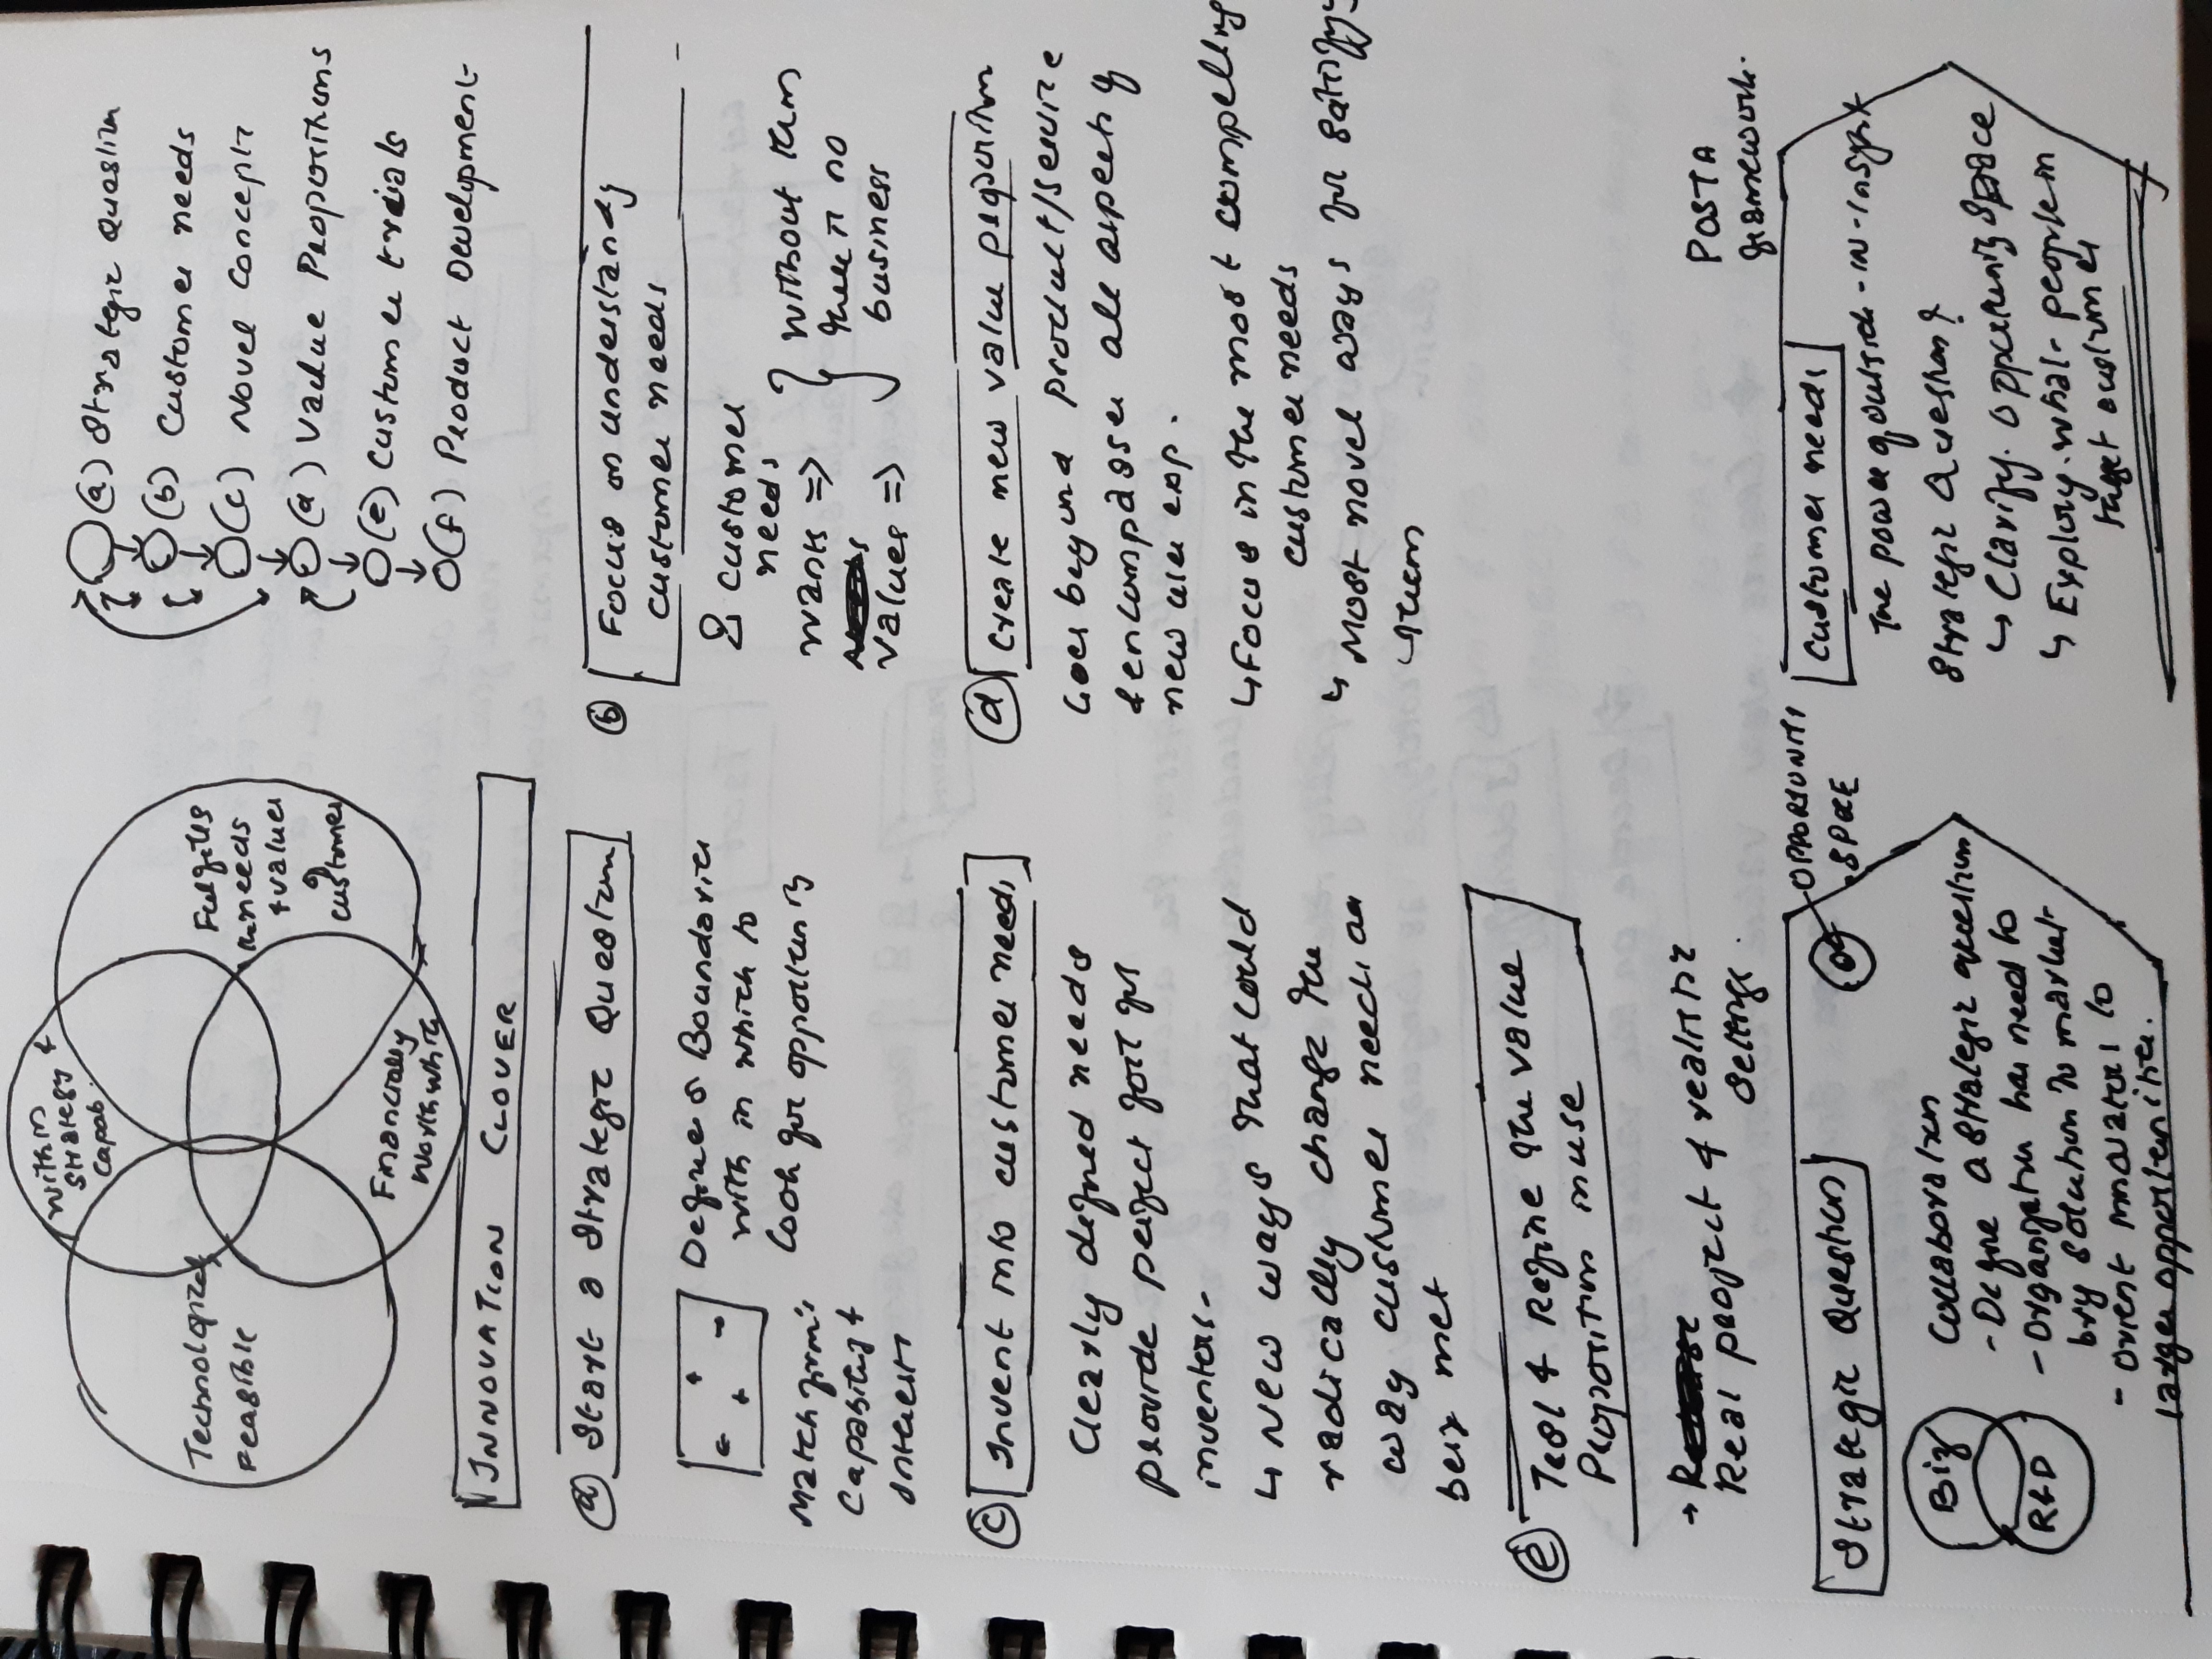 Within
Strategy &
Capab.
Technologically
Feasible
Fulfills
the needs
& values
of
customer
Financially
Worthwhile
INNOVATION CLOVER
(a) Strategic Question
(b) Customer needs
(c) Novel Concepts
(d) Value Propositions
(e) Customer trials
(f) Product Development
(a) Start a Strategic Question
Defines Boundaries
with in which to
look for opportunity
Match firm's
Capability &
Interests
(b) Focus on understandg
customer needs
customer
needs
wants =>
values =>
without them
there is no
business
(c) Invent into customer needs
Clearly defined needs
provide perfect foil for
inventors.
↳ New ways that could
radically change the
way customer needs are
being met
(d) Create new value proposition
Goes beyond product/service
& encompasses all aspects of
new user exp.
↳ Focus in the most compelling
customer needs
↳ Most novel ways for satisfyg
them
(e) Test & Refine the value
Proposition in use
→ Real project & realistic
settings.
POSTA
framework.
Strategic Question
OPPORTUNITY
SPACE
Biz
R&D
Collaboration
- Define a strategic question
- Organization has need to
brg solution to market
- Orient innovators to
larger opportunities.
Customer needs
The power of outside-IN-Insight
Strategic Question?
↳ Clarify. Opportunity Space
↳ Explorg. what people in
target customer